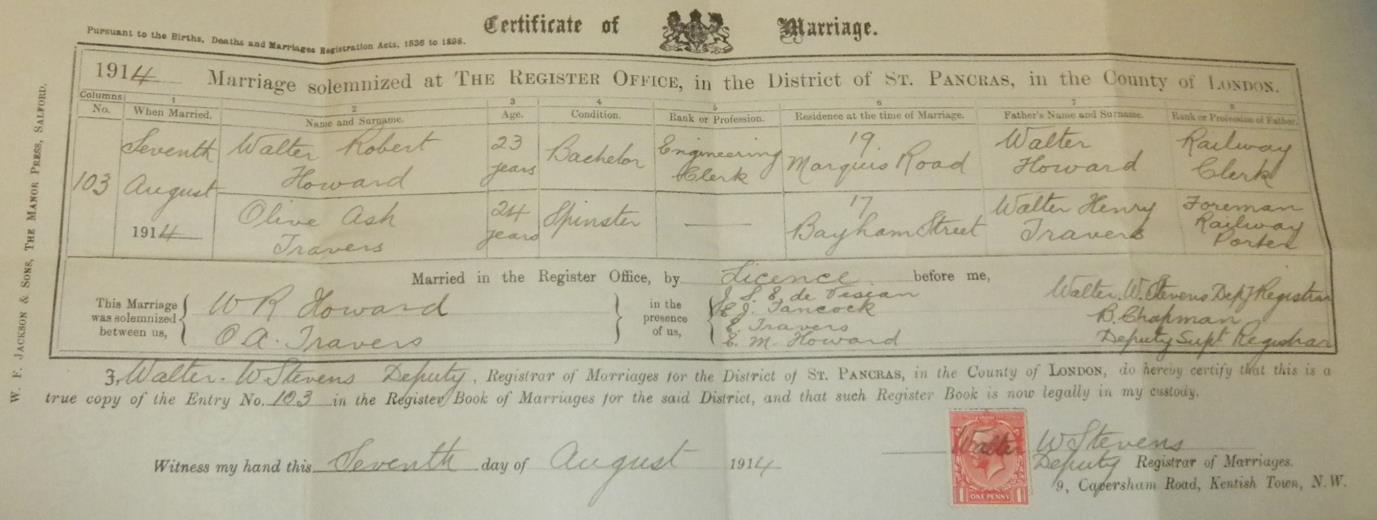 Certificate of Marriage.
Pursuant to the Births, Deaths and Marriages Registration Acts, 1836 to 1898.
1914 Marriage solemnized at THE REGISTER OFFICE, in the District of ST. PANCRAS, in the County of LONDON.
Columns 1 2 3 4 5 6 7 8
No. When Married. Name and Surname. Age. Condition. Rank or Profession. Residence at the time of Marriage. Father's Name and Surname. Rank or Profession of Father.
103
Seventh
August
1914
Walter Robert
Howard
23
years
Bachelor
Engineering
Clerk
19.
Marquis Road
Walter
Howard
Railway
Clerk
Olive Ash
Travers
24
years
Spinster
17
Bayham Street
Walter Henry
Travers
Foreman
Railway
Porter
Married in the Register Office, by Licence before me,
This Marriage
was solemnized
between us,
W R Howard
O A. Travers
in the
presence
of us,
J. S. E. de
E. J. Tancock
E. Travers
E. M. Howard
Walter. W. Stevens Depy Registrar
B. Chapman
Deputy Supt Registrar
I, Walter. W Stevens Deputy, Registrar of Marriages for the District of ST. PANCRAS, in the County of LONDON, do hereby certify that this is a
true copy of the Entry No. 103 in the Register Book of Marriages for the said District, and that such Register Book is now legally in my custody.
Witness my hand this Seventh day of August 1914
Walter W Stevens
Deputy Registrar of Marriages.
9, Caversham Road, Kentish Town, N.W.
1 ONE PENNY 1
W. F. JACKSON & SONS, THE MANOR PRESS, SALFORD.